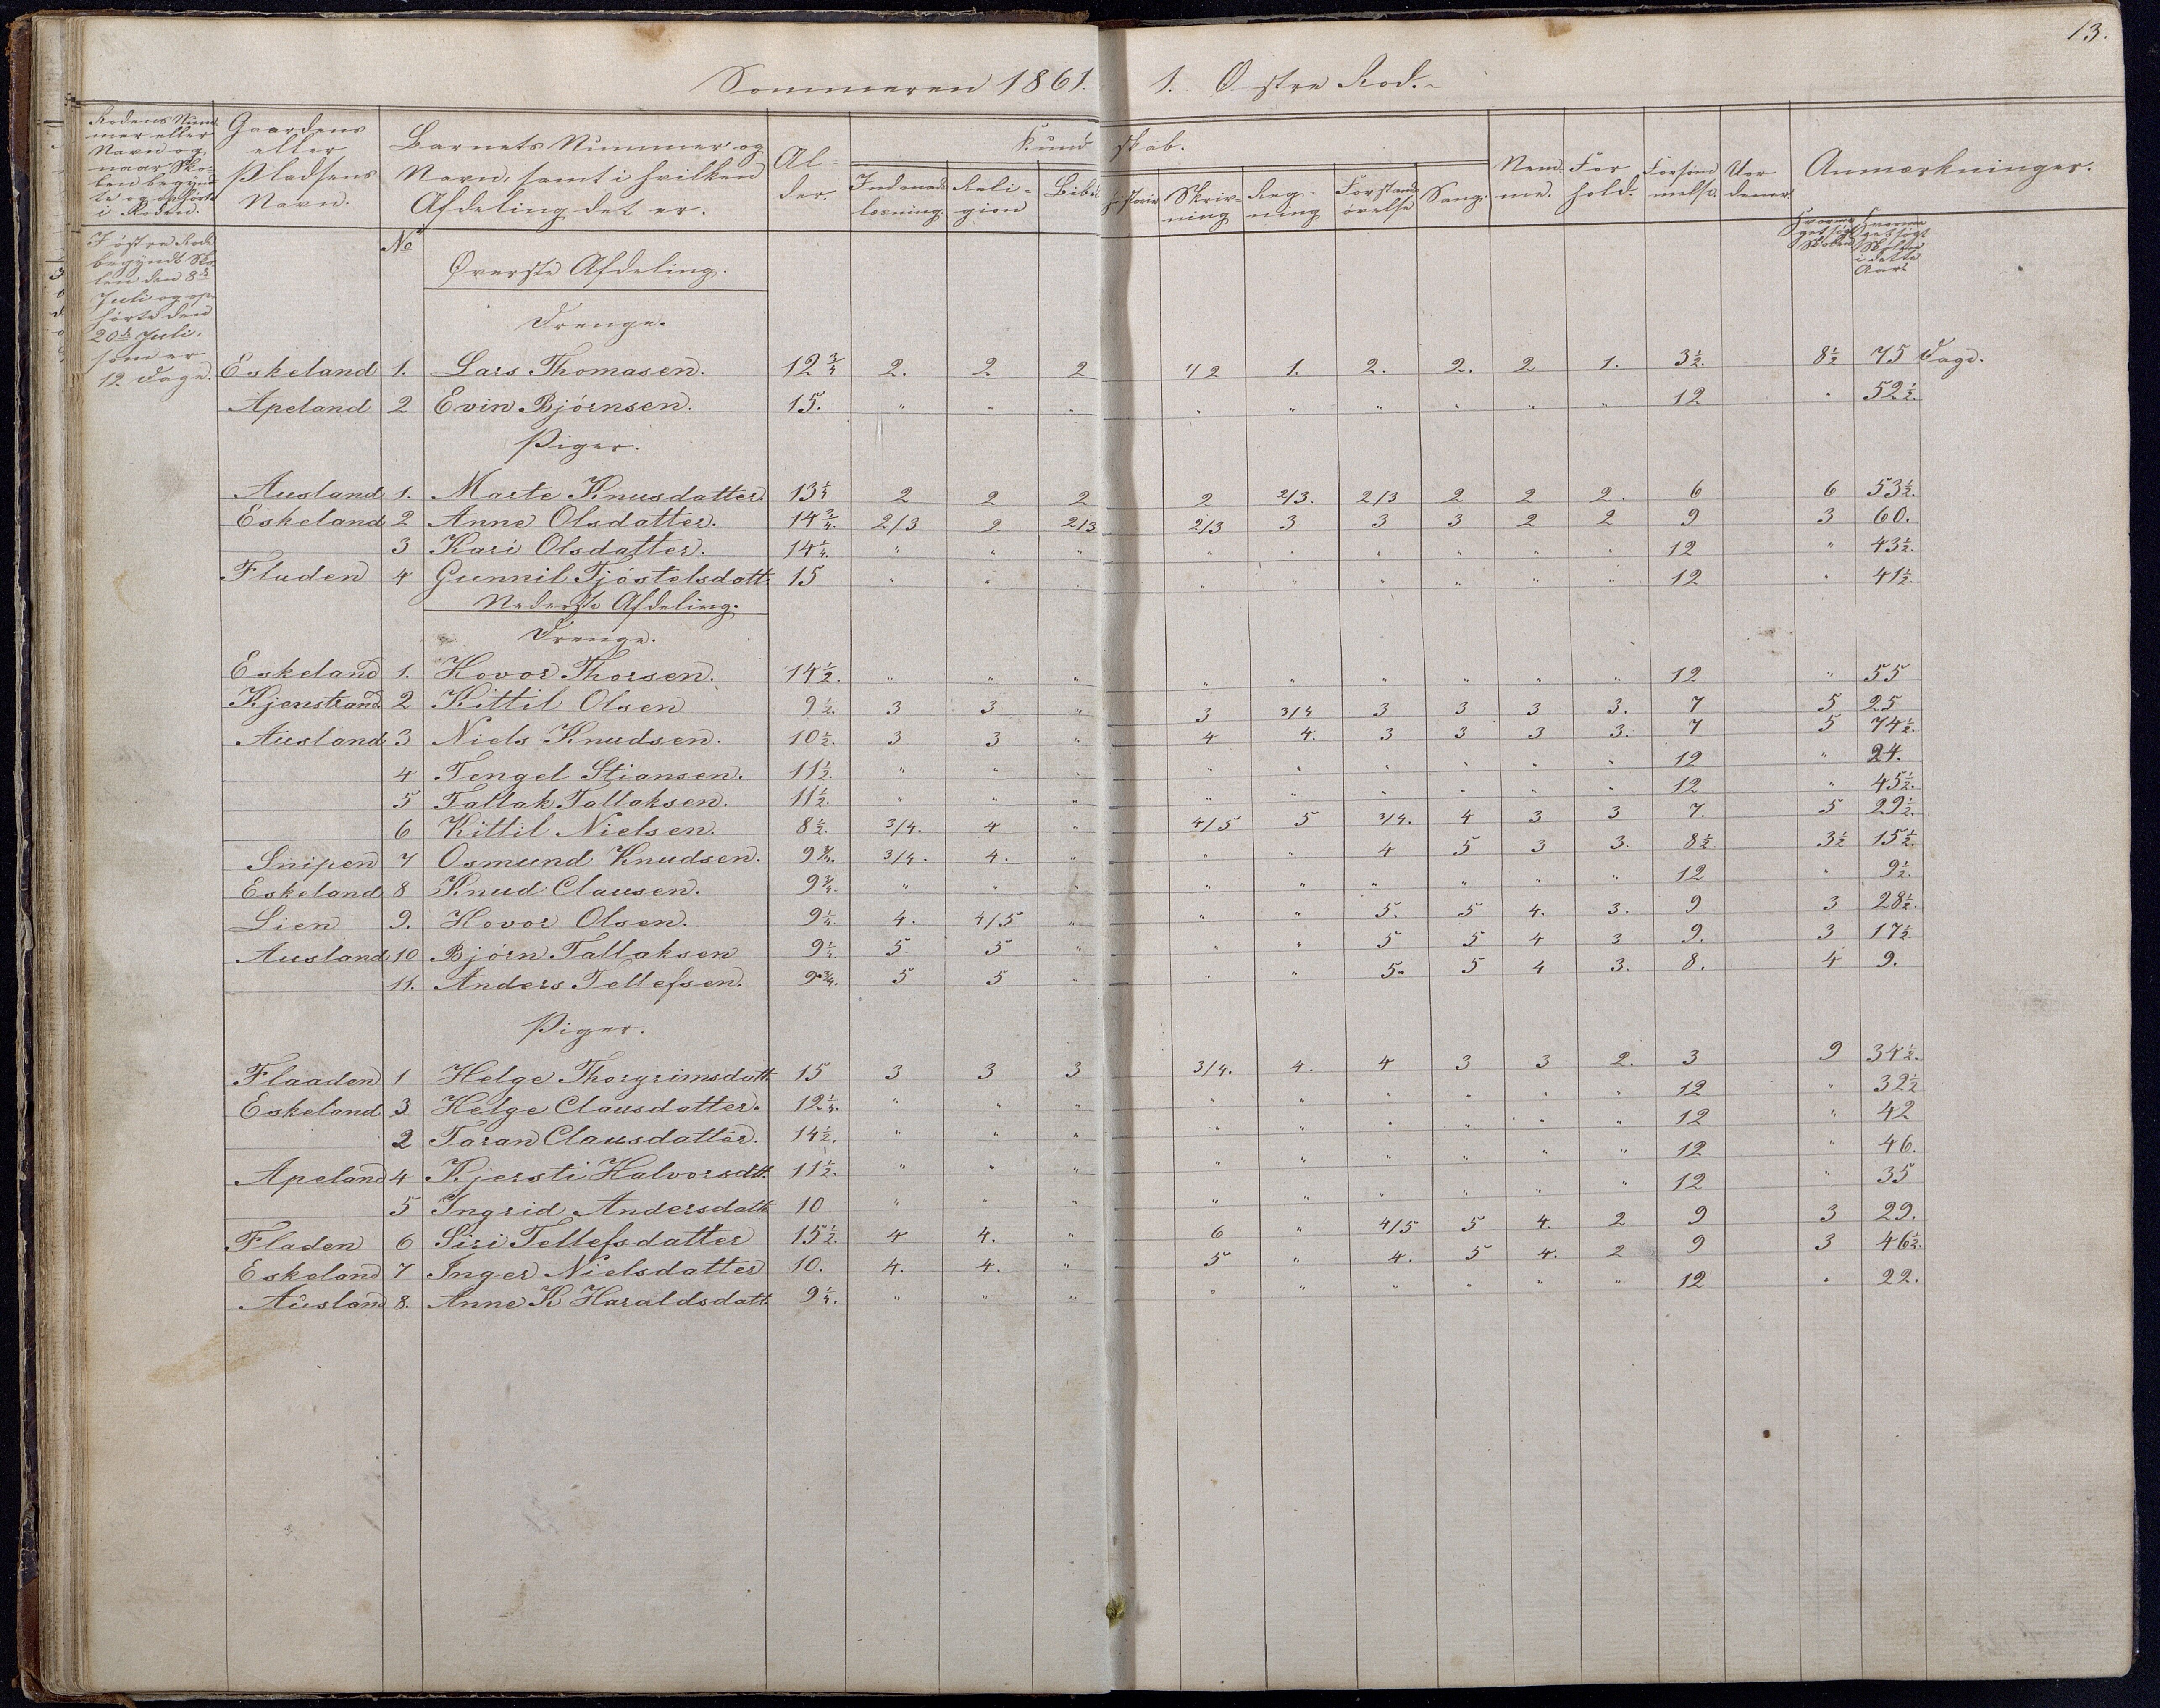 13.
Sommeren 1861. 1. Østre Rod.
Rodens Num-
mer eller
Navn og
naar Sko-
len begynd-
te og ophørte
i Roden.
Gaardens
eller
Pladsens
Navn.
Barnets Nummer og
Navn, samt i hvilken
Afdeling det er.
Al-
der.
Kundskab.
Indenads-
læsning.
Reli-
gion
Bibelhistorie
Skriv-
ning
Reg-
ning
Forstands
øvelse
Sang.
Nem-
me.
For
hold.
Forsøm
melse.
Uor
dener
Anmærkninger.
I østre Rode
begyndt Sko-
len den 8de
Juli og op-
hørte den
20de Juli,
som er
12 Dage.
No
Øverste Afdeling.
Drenge.
Eskeland 1. Lars Thomasen. 12 3/4 2. 2 2 1/2 1. 2. 2. 2 1. 3 1/2. 8 1/2 75 Dage.
Apeland 2 Evin Bjørnsen. 15. " " " " " " " " " 12 " 52 1/2.
Piger.
Ausland 1. Marte Knusdatter. 13 1/4 2 2 2 2 2/3. 2/3 2 2 2. 6 6 53 1/2.
Eskeland 2 Anne Olsdatter. 14 3/4. 2/3 2 2/3 2/3 3 3 3 2 2 9 3 60.
3 Kari Olsdatter. 14 1/4. " " " " " " " " " 12 " 43 1/2.
Fladen 4 Gunnil Tjöstelsdatt. 15 " " " " " " " " " 12 " 41 1/2.
Nederste Afdeling.
Drenge.
Eskeland 1. Hovor Thorsen. 14 1/2. " " " " " " " " " 12 " 55
Kjenstrand 2 Kittil Olsen 9 1/2. 3 3 " 3 3/4 3 3 3 3. 7 5 25
Ausland 3 Niels Knudsen. 10 1/2. 3 3 " 4 4. 3 3 3 3. 7 5 74 1/2.
4 Tengel Stiansen. 11 1/2. " " " " " " " " " 12 " 24.
5 Tallak Tallaksen. 11 1/2. " " " " " " " " " 12 " 45 1/2.
6 Kittil Nielsen. 8 1/2. 3/4. 4 " 4/5 5 3/4. 4 3 3 7. 5 22 1/2.
Snipen 7 Osmund Knudsen. 9 3/4. 3/4. 4. " " " 4 5 3 3. 8 1/2. 3 1/2 15 1/2.
Eskeland 8 Knud Clausen. 9 3/4. " " " " " " " " " 12 " 9 1/2.
Lien 9. Hovor Olsen. 9 1/4. 4. 4/5 " " " 5. 5 4. 3. 9 3 28 1/2.
Ausland 10 Bjørn Tallaksen 9 1/4. 5 5 " " " 5 5 4 3 9. 3 17 1/2
11. Anders Tellefsen. 9 3/4. 5 5 " " " 5. 5 4 3. 8. 4 9.
Piger.
Flaaden 1 Helge Thorgrimsdatt. 15 3 3 3 3/4. 4. 4 3 3 2. 3 9 34 1/2.
Eskeland 3 Helge Clausdatter. 12 1/4. " " " " " " " " " 12 " 32 1/2
2 Taran Clausdatter. 14 1/2. " " " " " " " " " 12 " 42
Apeland 4 Kjersti Halvorsdtt. 11 1/2. " " " " " " " " " 12 " 46.
5 Ingrid Andersdatt. 10 " " " " " " " " " 12 " 35
Fladen 6 Siri Tellefsdatter 15 1/2. 4 4. " 6 " 4/5 5 4. 2 9 3 29.
Eskeland 7 Inger Nielsdatter 10. 4. 4. " 5 " 4. 5 4. 2 9 3 46 1/2.
Ausland 8. Anne K Haraldsdatt. 9 1/4. " " " " " " " " " 12 " 22.